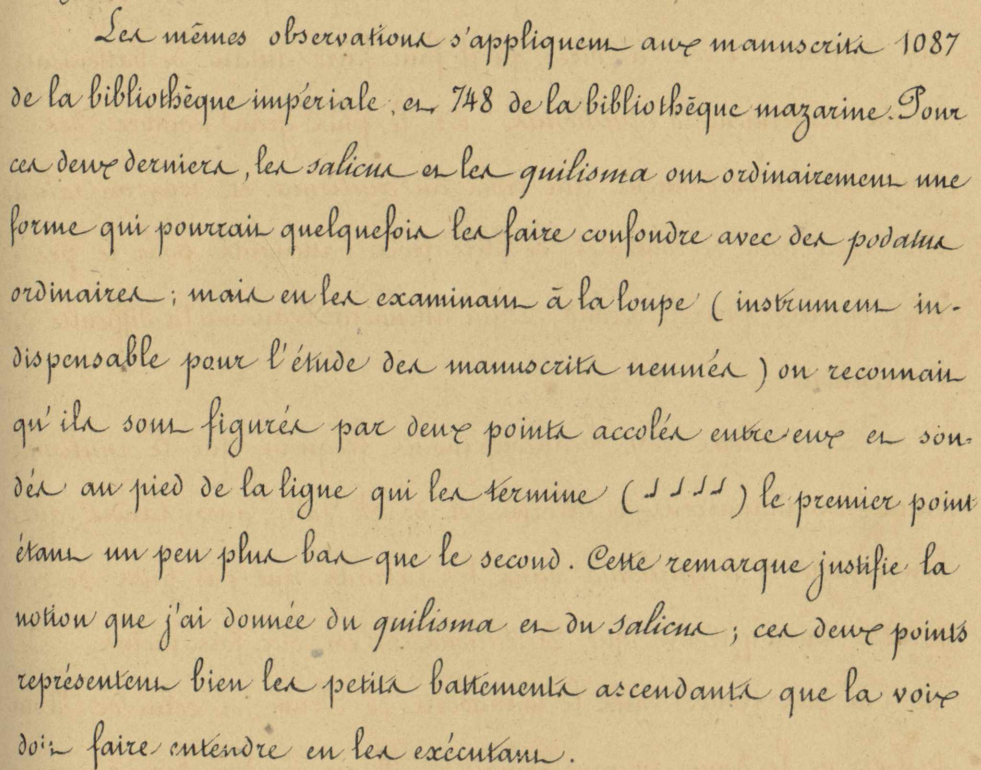 Les mêmes observations s'appliquent aux manuscrits 1087
de la bibliothèque impériale, et 748 de la bibliothèque mazarine. Pour
ces deux derniers, les salicus et les quilisma ont ordinairement une
forme qui pourrait quelquefois les faire confondre avec des podatus
ordinaires ; mais en les examinant à la loupe (instrument in-
dispensable pour l'étude des manuscrits neumés) on reconnait
qu'ils sont figurés par deux points accolés entre eux et sou-
dés au pied de la ligne qui les termine ( ) le premier point
étant un peu plus bas que le second. Cette remarque justifie la
notion que j'ai donnée du quilisma et du salicus ; ces deux points
représentent bien les petits battements ascendants que la voix
doit faire entendre en les exécutant.